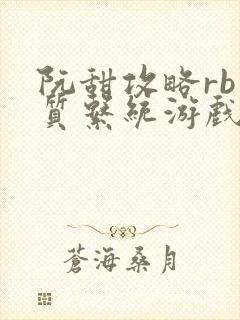 阮甜攻略rb
質系統游戲
蒼海桑月